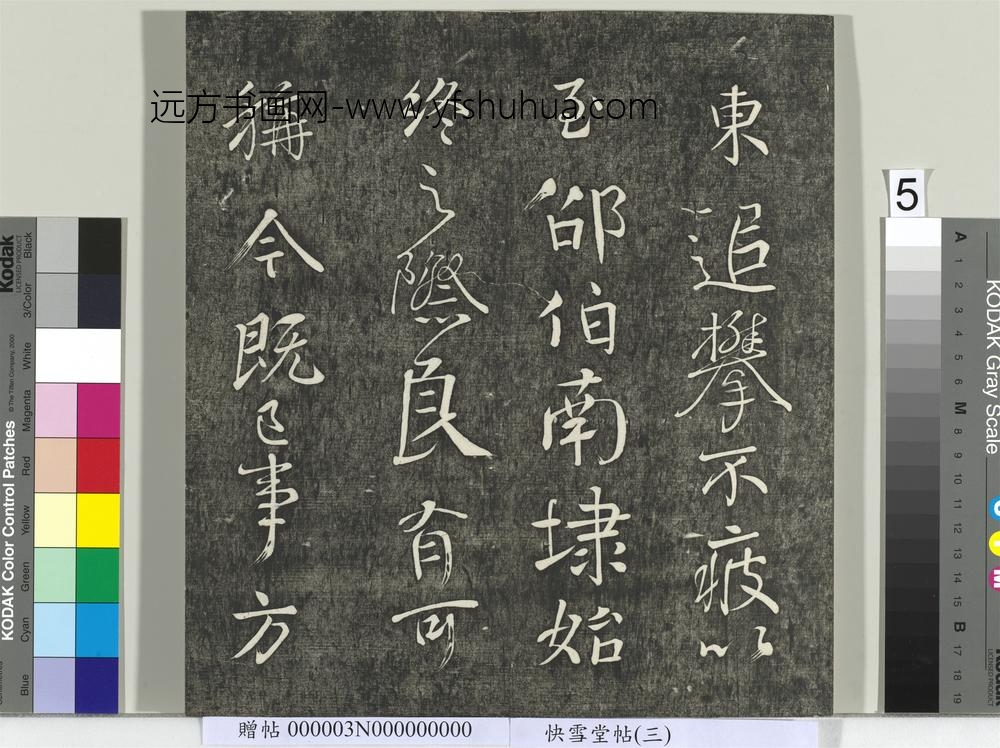 東追攀不疲以
至邵伯南埭始
終之際良有可
稱今既已事方
远方书画网-www.yfshuhua.com
5
Kodak
LICENSED PRODUCT
KODAK Color Control Patches
© The Tiffen Company, 2000
Blue Cyan Green Yellow Red Magenta White 3/Color Black
KODAK Gray Scale
A 1 2 3 4 5 6 M 8 9 10 11 12 13 14 15 B 17 18 19
贈帖 000003N000000000
快雪堂帖(三)